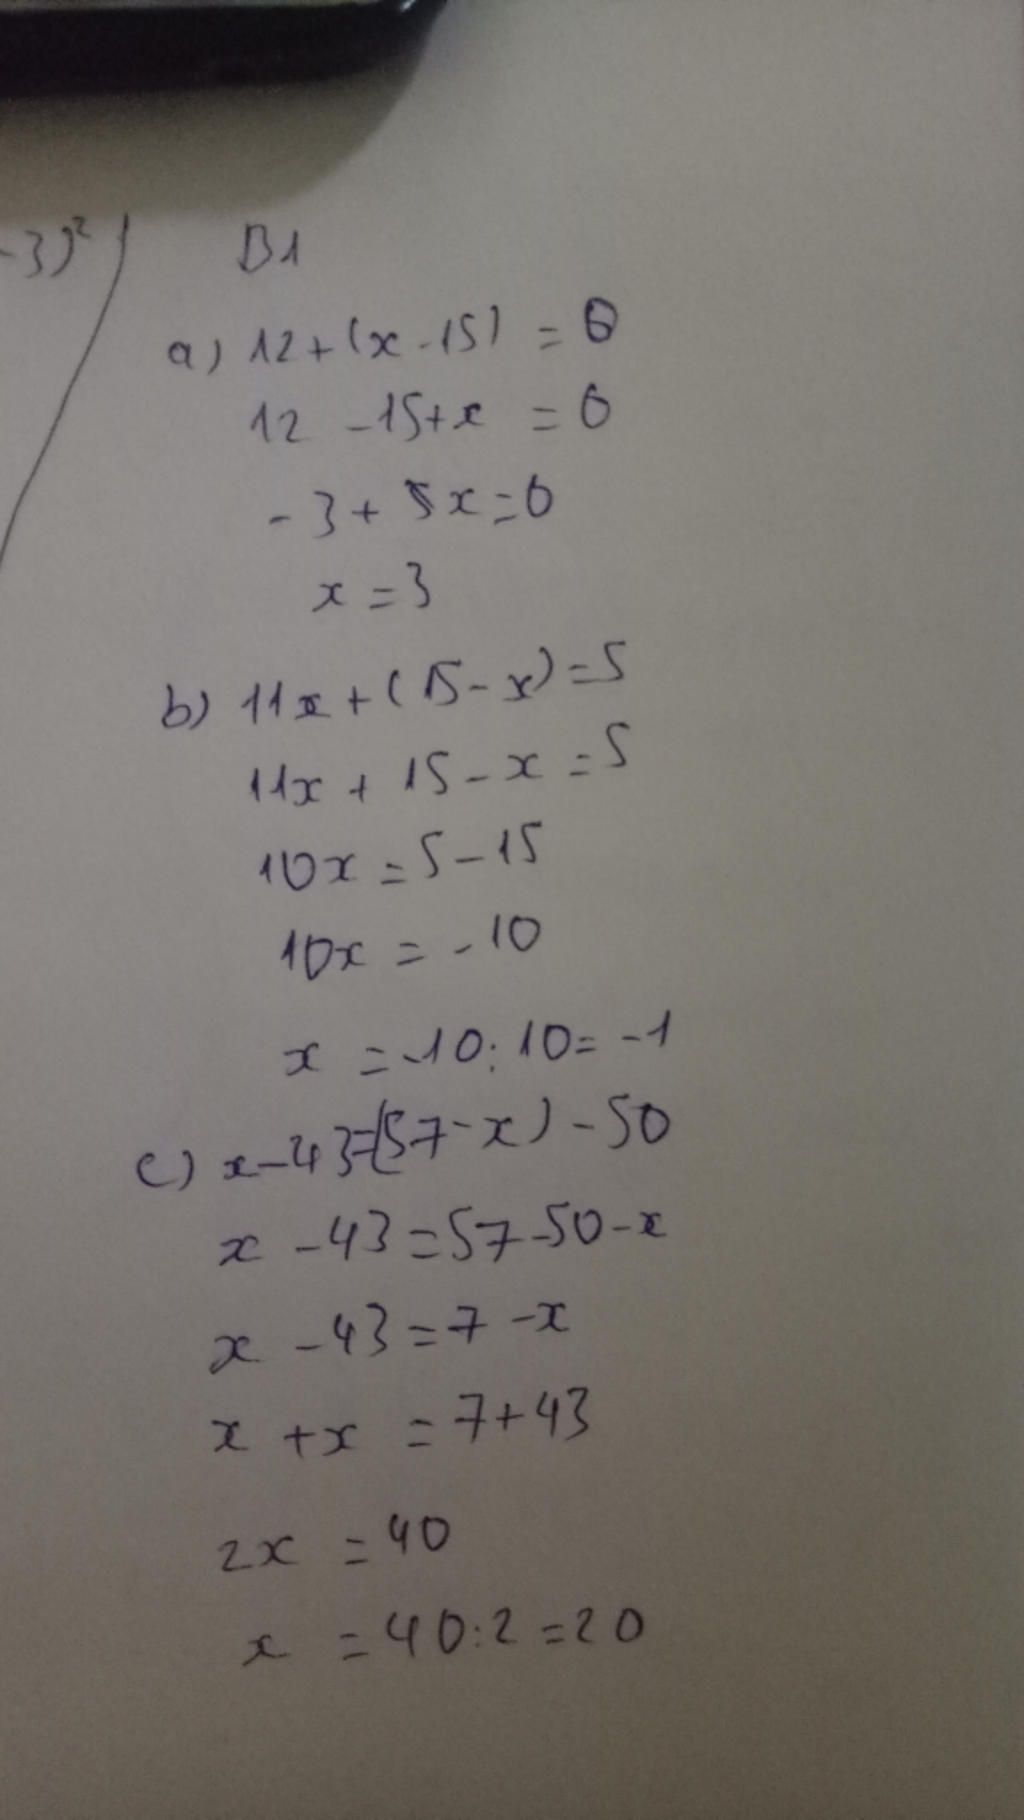 -3)²
B1
a) 12+(x-15) = 0
12 -15+x = 0
-3+ x=0
x=3
b) 11x+(15-x)=5
11x+15-x=5
10x=5-15
10x=-10
x=-10:10=-1
c) x-43=(57-x)-50
x-43=57-50-x
x-43=7-x
x+x=7+43
2x=40
x=40:2=20